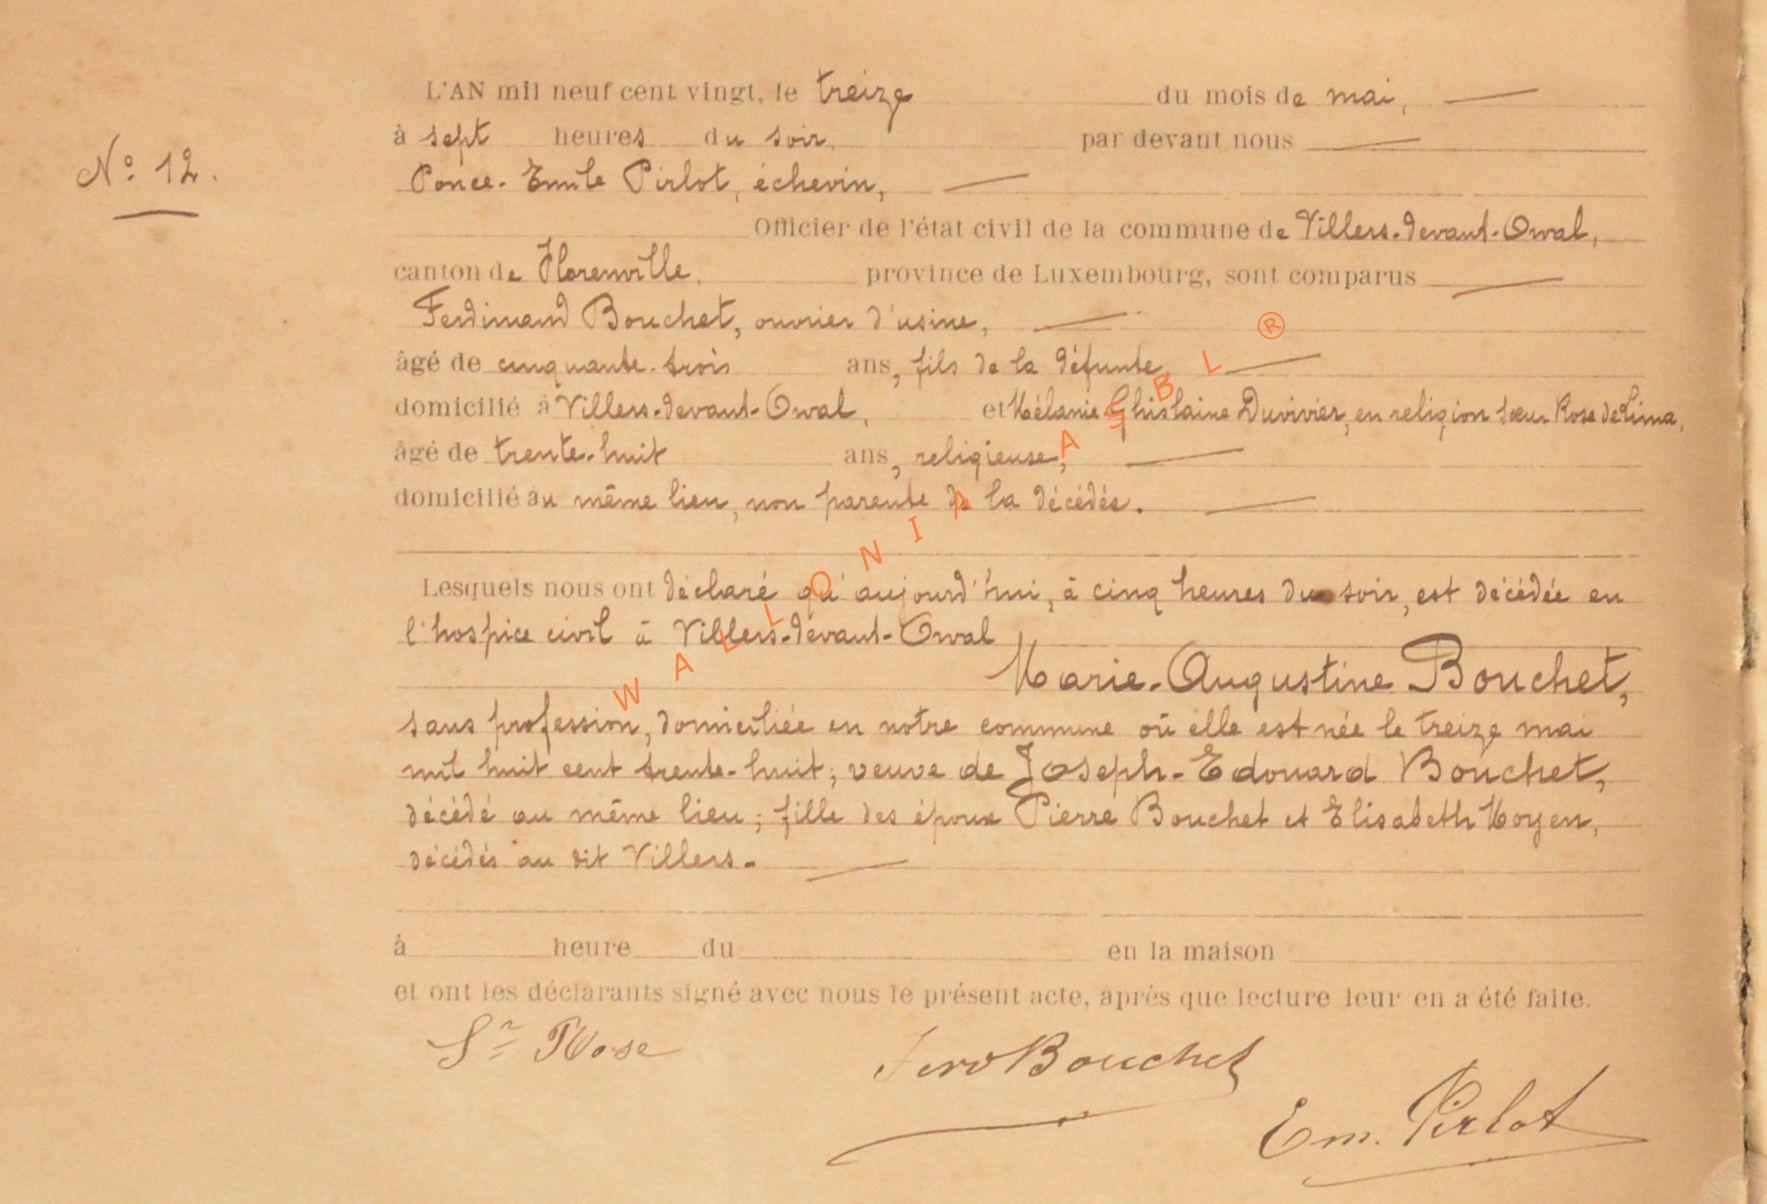 L'AN mil neuf cent vingt, le treize du mois de mai,
N° 12.
à sept heures du soir, par devant nous
Ponce-Emile Pirlot, échevin,
Officier de l'état civil de la commune de Villers-devant-Orval,
canton de Florenville, province de Luxembourg, sont comparus
Ferdinand Bouchet, ouvrier d'usine,
âgé de cinquante-trois ans, fils de la défunte,
domicilié à Villers-devant-Orval, et Mélanie Ghislaine Duvivier, en religion sœur Rose de Lima,
âgé de trente-huit ans, religieuse,
domicilié au même lieu, non parente de la décédée.
Lesquels nous ont déclaré qu'aujourd'hui, à cinq heures du soir, est décédée en
l'hospice civil à Villers-devant-Orval
Marie-Augustine Bouchet,
sans profession, domiciliée en notre commune où elle est née le treize mai
mil huit cent trente-huit; veuve de Joseph-Edouard Bouchet,
décédé au même lieu; fille des époux Pierre Bouchet et Elisabeth Moyen,
décédés au dit Villers.
à heure du en la maison
et ont les déclarants signé avec nous le présent acte, après que lecture leur en a été faite.
Sr Rose
Ferd Bouchet
Em. Pirlot
WALLONIA ASBL ®